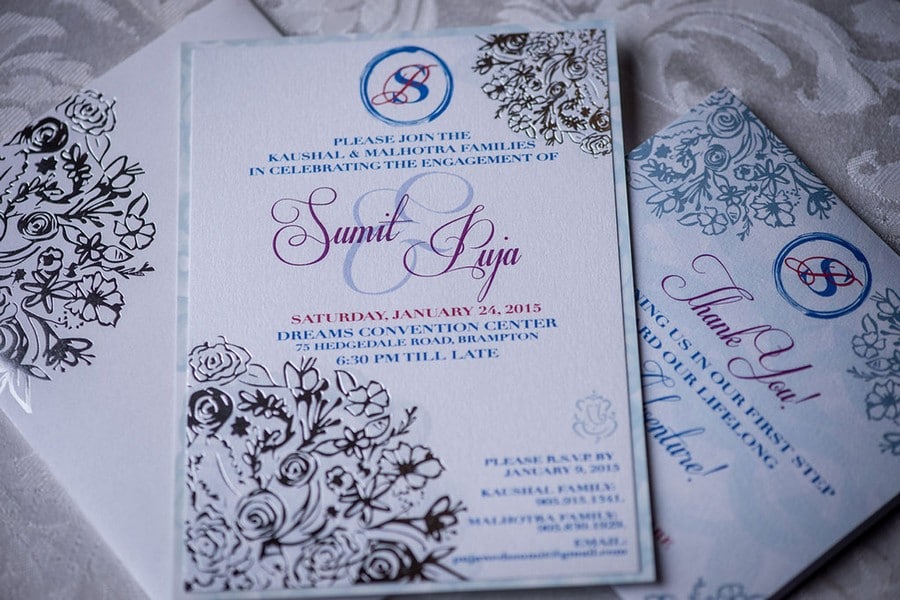 S
PLEASE JOIN THE
KAUSHAL & MALHOTRA FAMILIES
IN CELEBRATING THE ENGAGEMENT OF
Sumit & Puja
SATURDAY, JANUARY 24, 2015
DREAMS CONVENTION CENTER
75 HEDGEDALE ROAD, BRAMPTON
6:30 PM TILL LATE
PLEASE R.S.V.P BY
JANUARY 9, 2015
KAUSHAL FAMILY:
MALHOTRA FAMILY:
EMAIL:
S
Thank You!
US IN OUR FIRST STEP
OUR LIFELONG